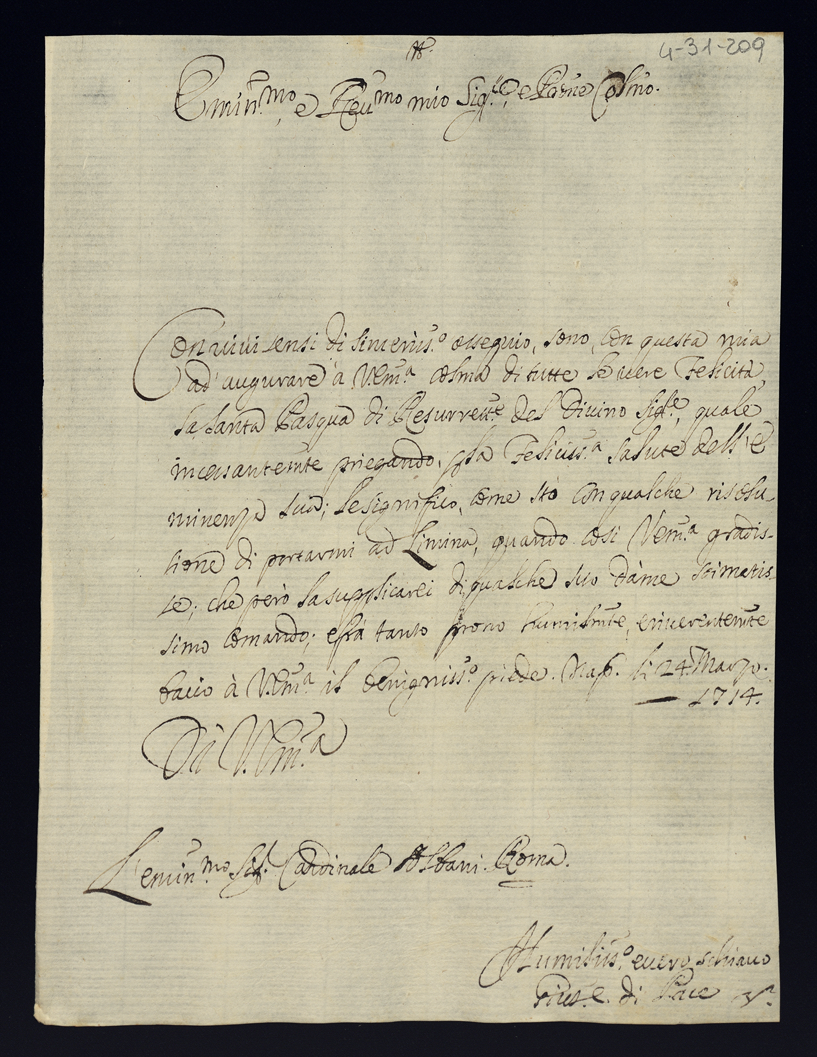 4-31-209
Emin.mo, e Reu.mo mio Sig.re, e Pa'ne Col'mo.
Con viui sensi di sinceris.o ossequio, sono, con questa mia
ad' augurare à V.Em.a colma di tutte le uere Felicità,
la santa Pasqua di Resurret.ne del Diuino Sig.re, quale
incessantem'te priegando, p la Feliciss.a salute dell'E
minenza sua; le significo, come stò con qualche risolu
tione di portarmi ad Limina, quando così V.Em.a gradis-
se; che però la supplicarei di qualche suo dà me stimatis-
simo comando; e frà tanto prono humilm'te, e riuerentem'te
bacio à V.Em.a il benigniss.o piede. Nap. li 24. Marzo.
1714.
Di V.Em.a
L'emin.mo Sig.r Cardinale Albani. Roma.
Humiliss.o, e uero schiauo
Gius.e di Pace